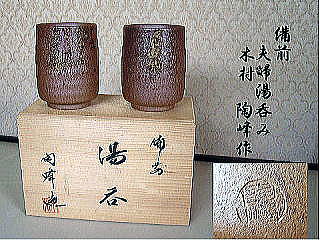 備前
夫婦湯呑み
木村 陶峰作
備前
湯呑
陶峰